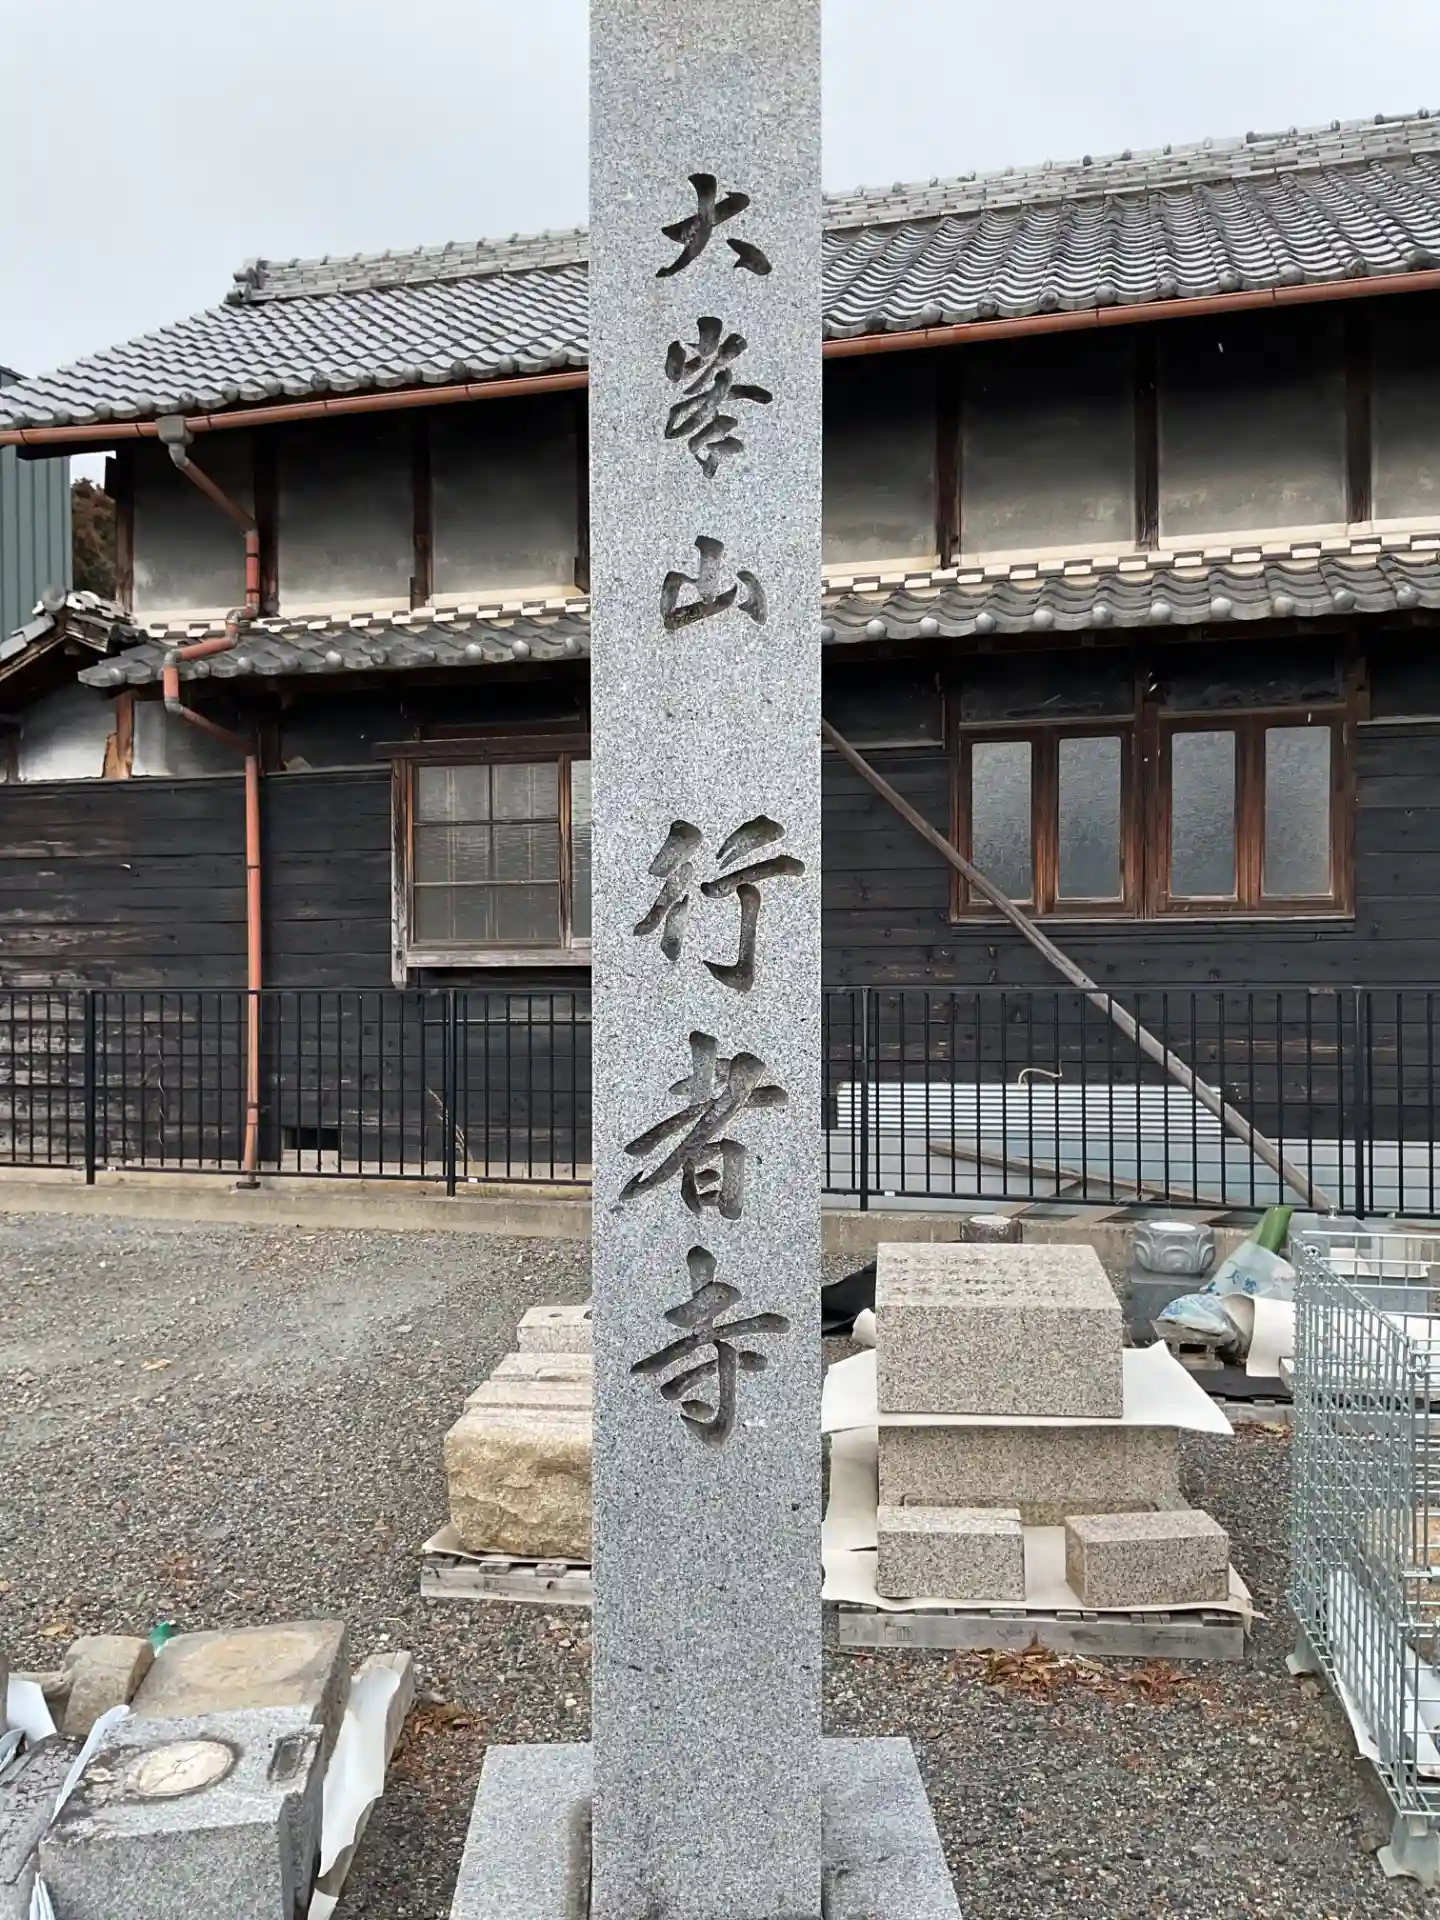 大峯山行者寺